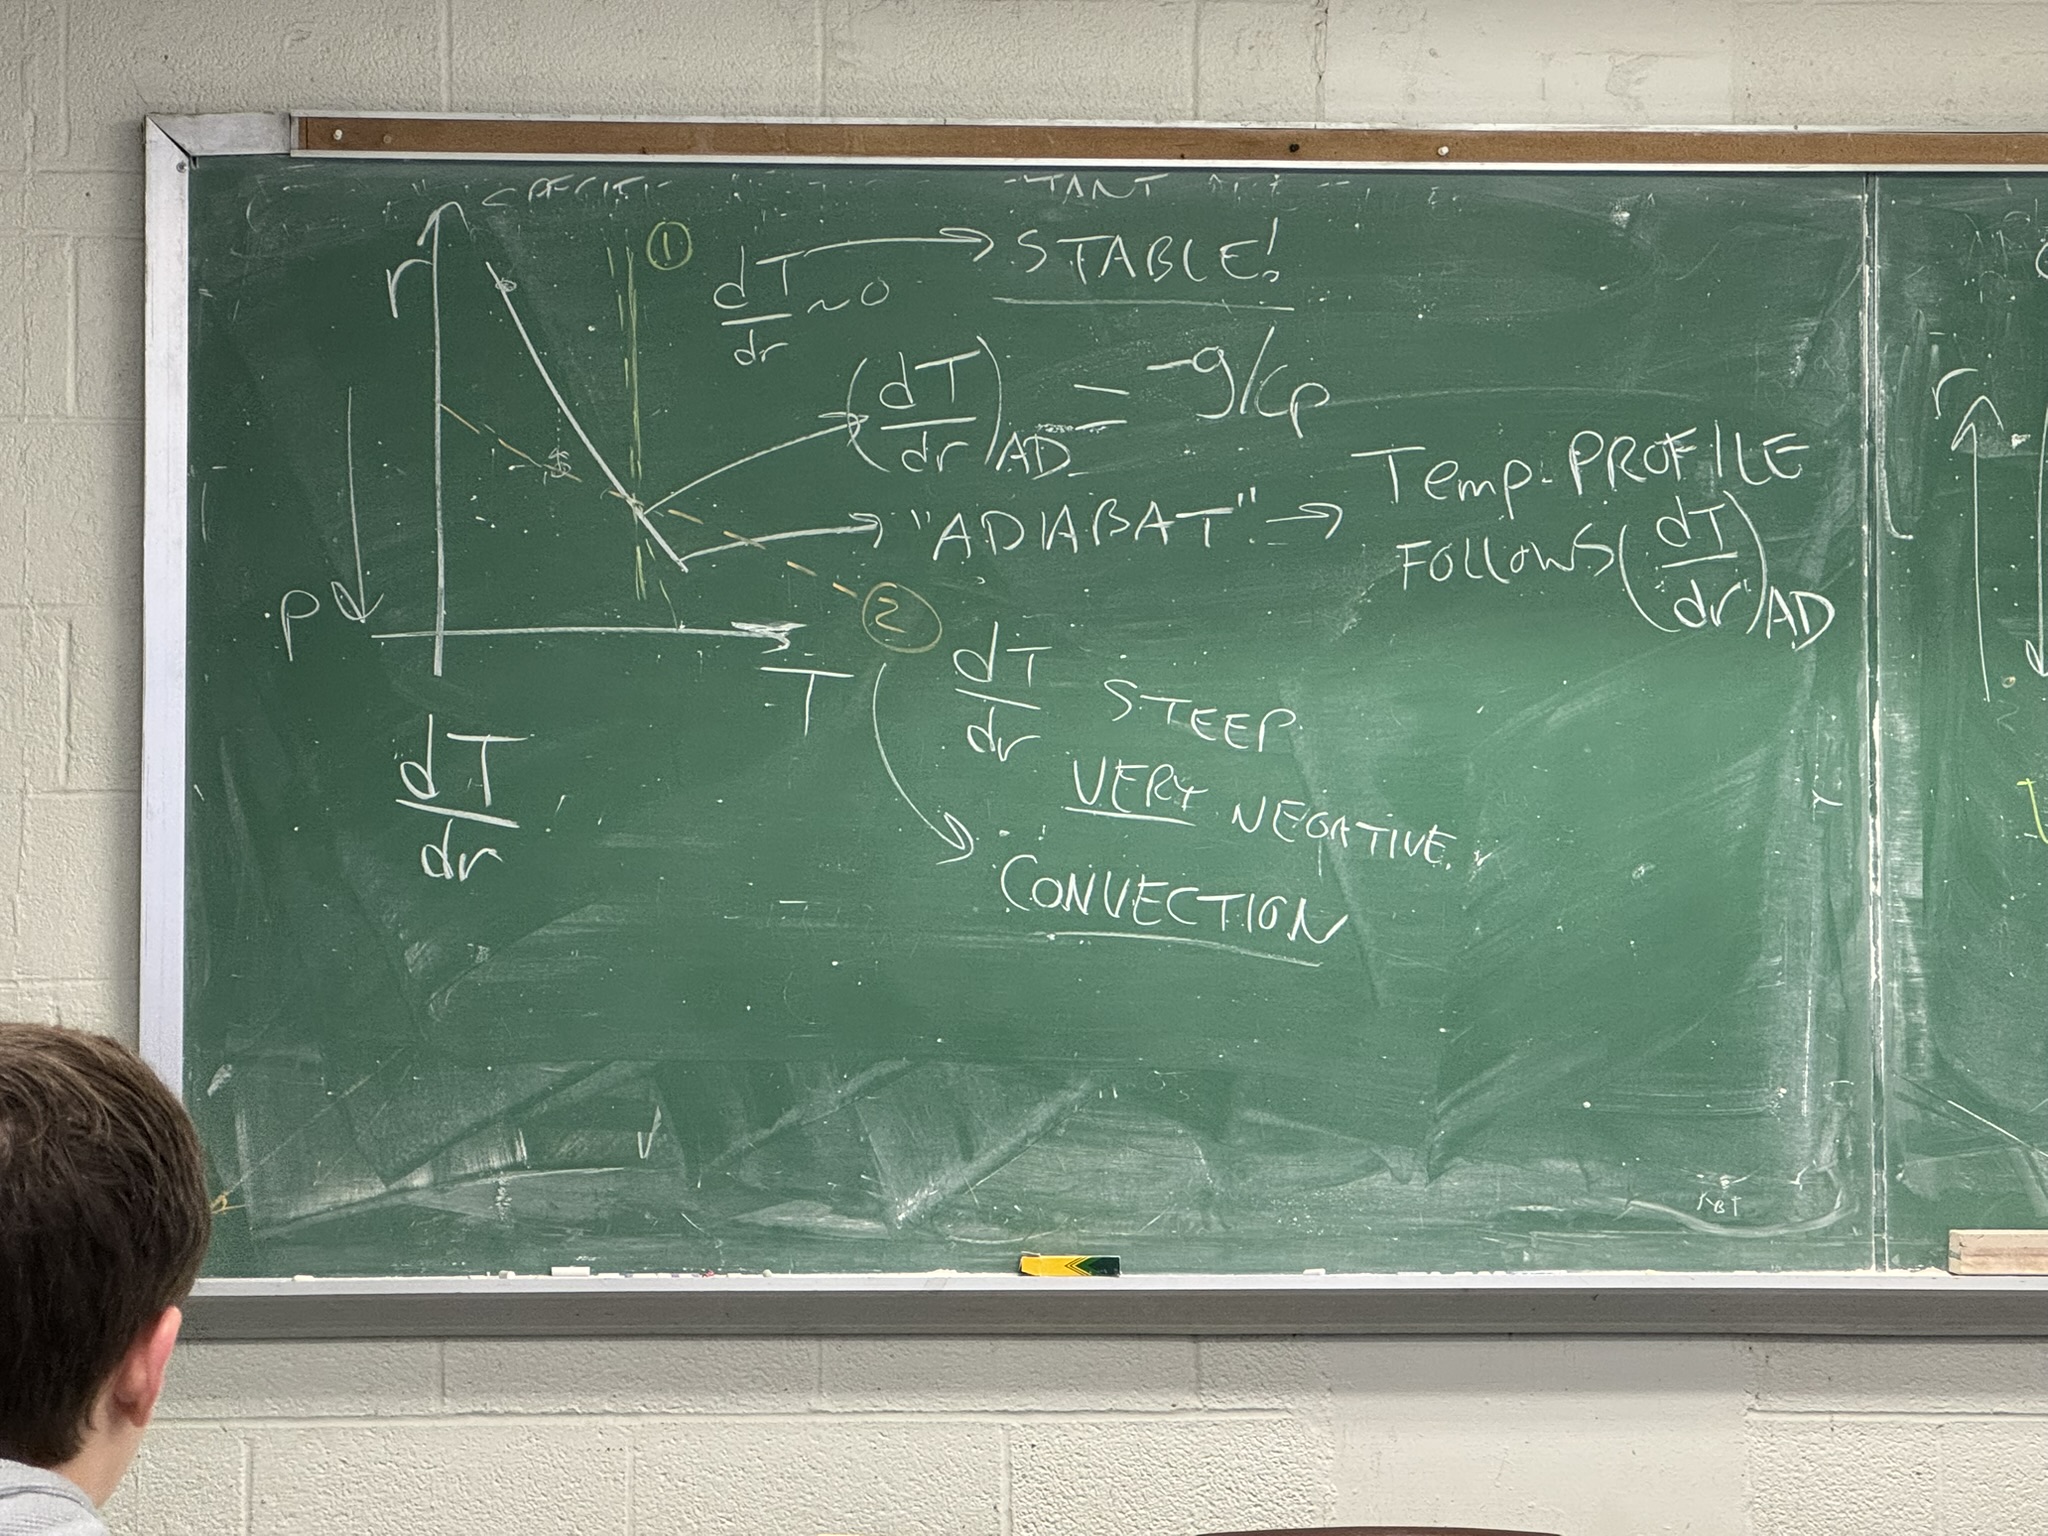 r
①
dT/dr ~0 → STABLE!
(dT/dr)AD = -g/cp
"ADIABAT" → Temp. PROFILE
FOLLOWS (dT/dr)AD
p
T
②
dT/dr STEEP
VERY NEGATIVE.
CONVECTION
dT/dr
r